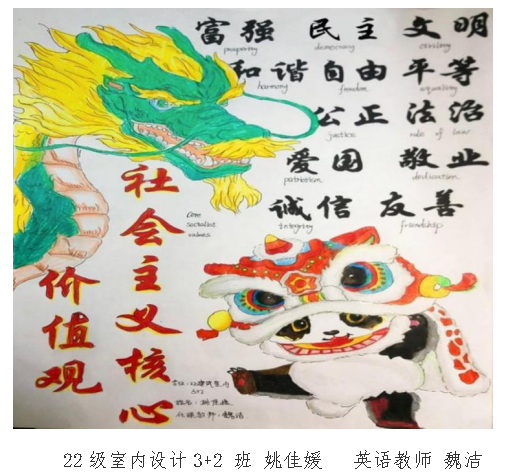 富强 民主 文明
prosperity democracy civility
和谐 自由 平等
harmony freedom equality
公正 法治
justice rule of law
爱国 敬业
patriotism dedication
诚信 友善
integrity friendship
社会主义核心
价值观
Core
socialist
values
3+2
姓名:姚佳媛
任课教师:魏洁
22级室内设计3+2 班 姚佳媛 英语教师 魏洁